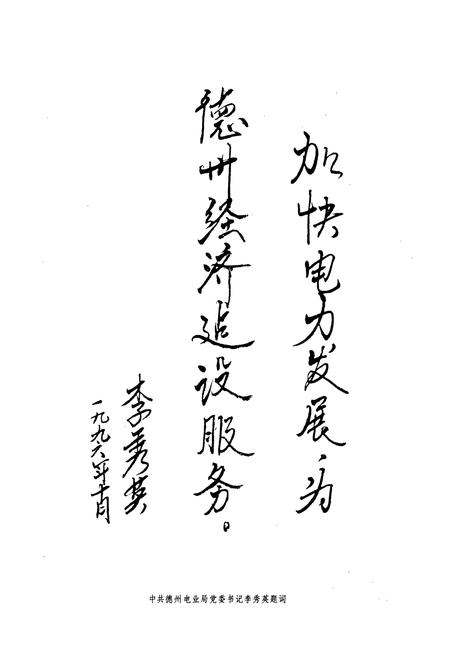 加快电力发展，为
德州经济建设服务。
李秀英
一九九六年十月
中共德州电业局党委书记李秀英题词